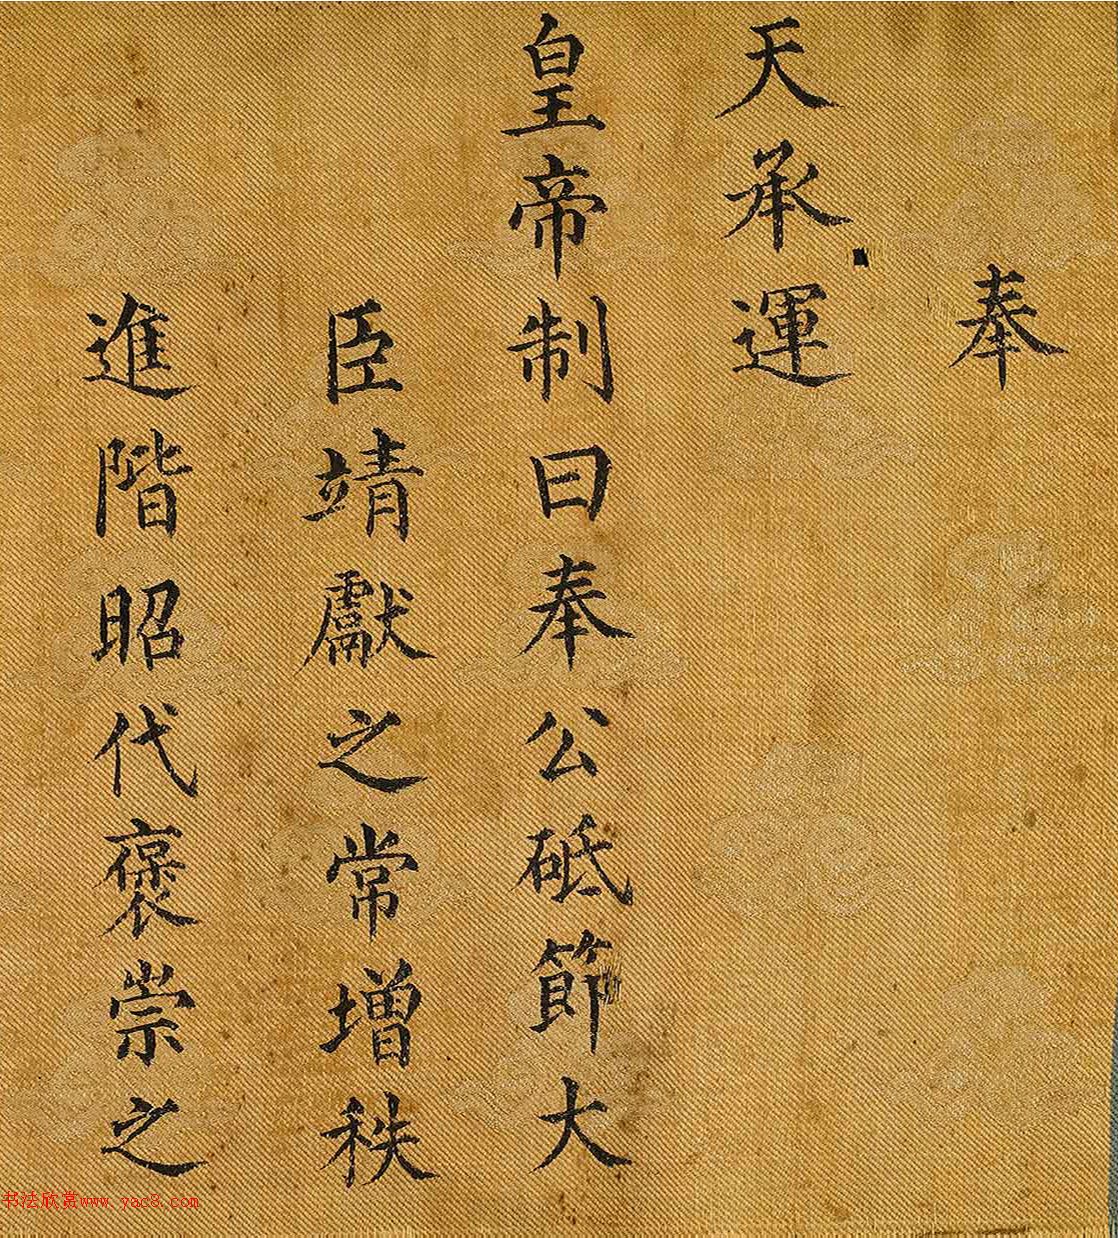 奉
天承運
皇帝制曰奉公砥節大
臣靖獻之常增秩
進階昭代褒崇之
书法欣赏www.yac8.com